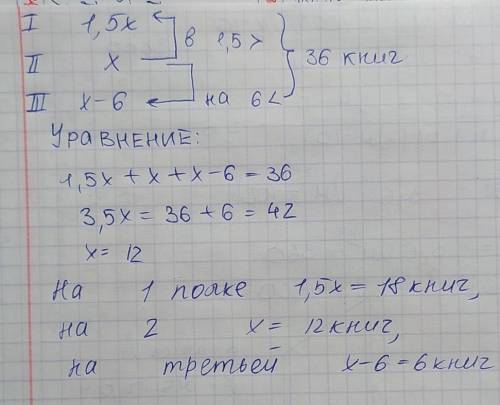 I 1,5x в 1,5 >
II x 36 книг
III x-6 на 6 <
Уравнение:
1,5x + x + x - 6 = 36
3,5x = 36 + 6 = 42
x = 12
На 1 полке 1,5x = 18 книг,
на 2 x = 12 книг,
на третьей x - 6 = 6 книг